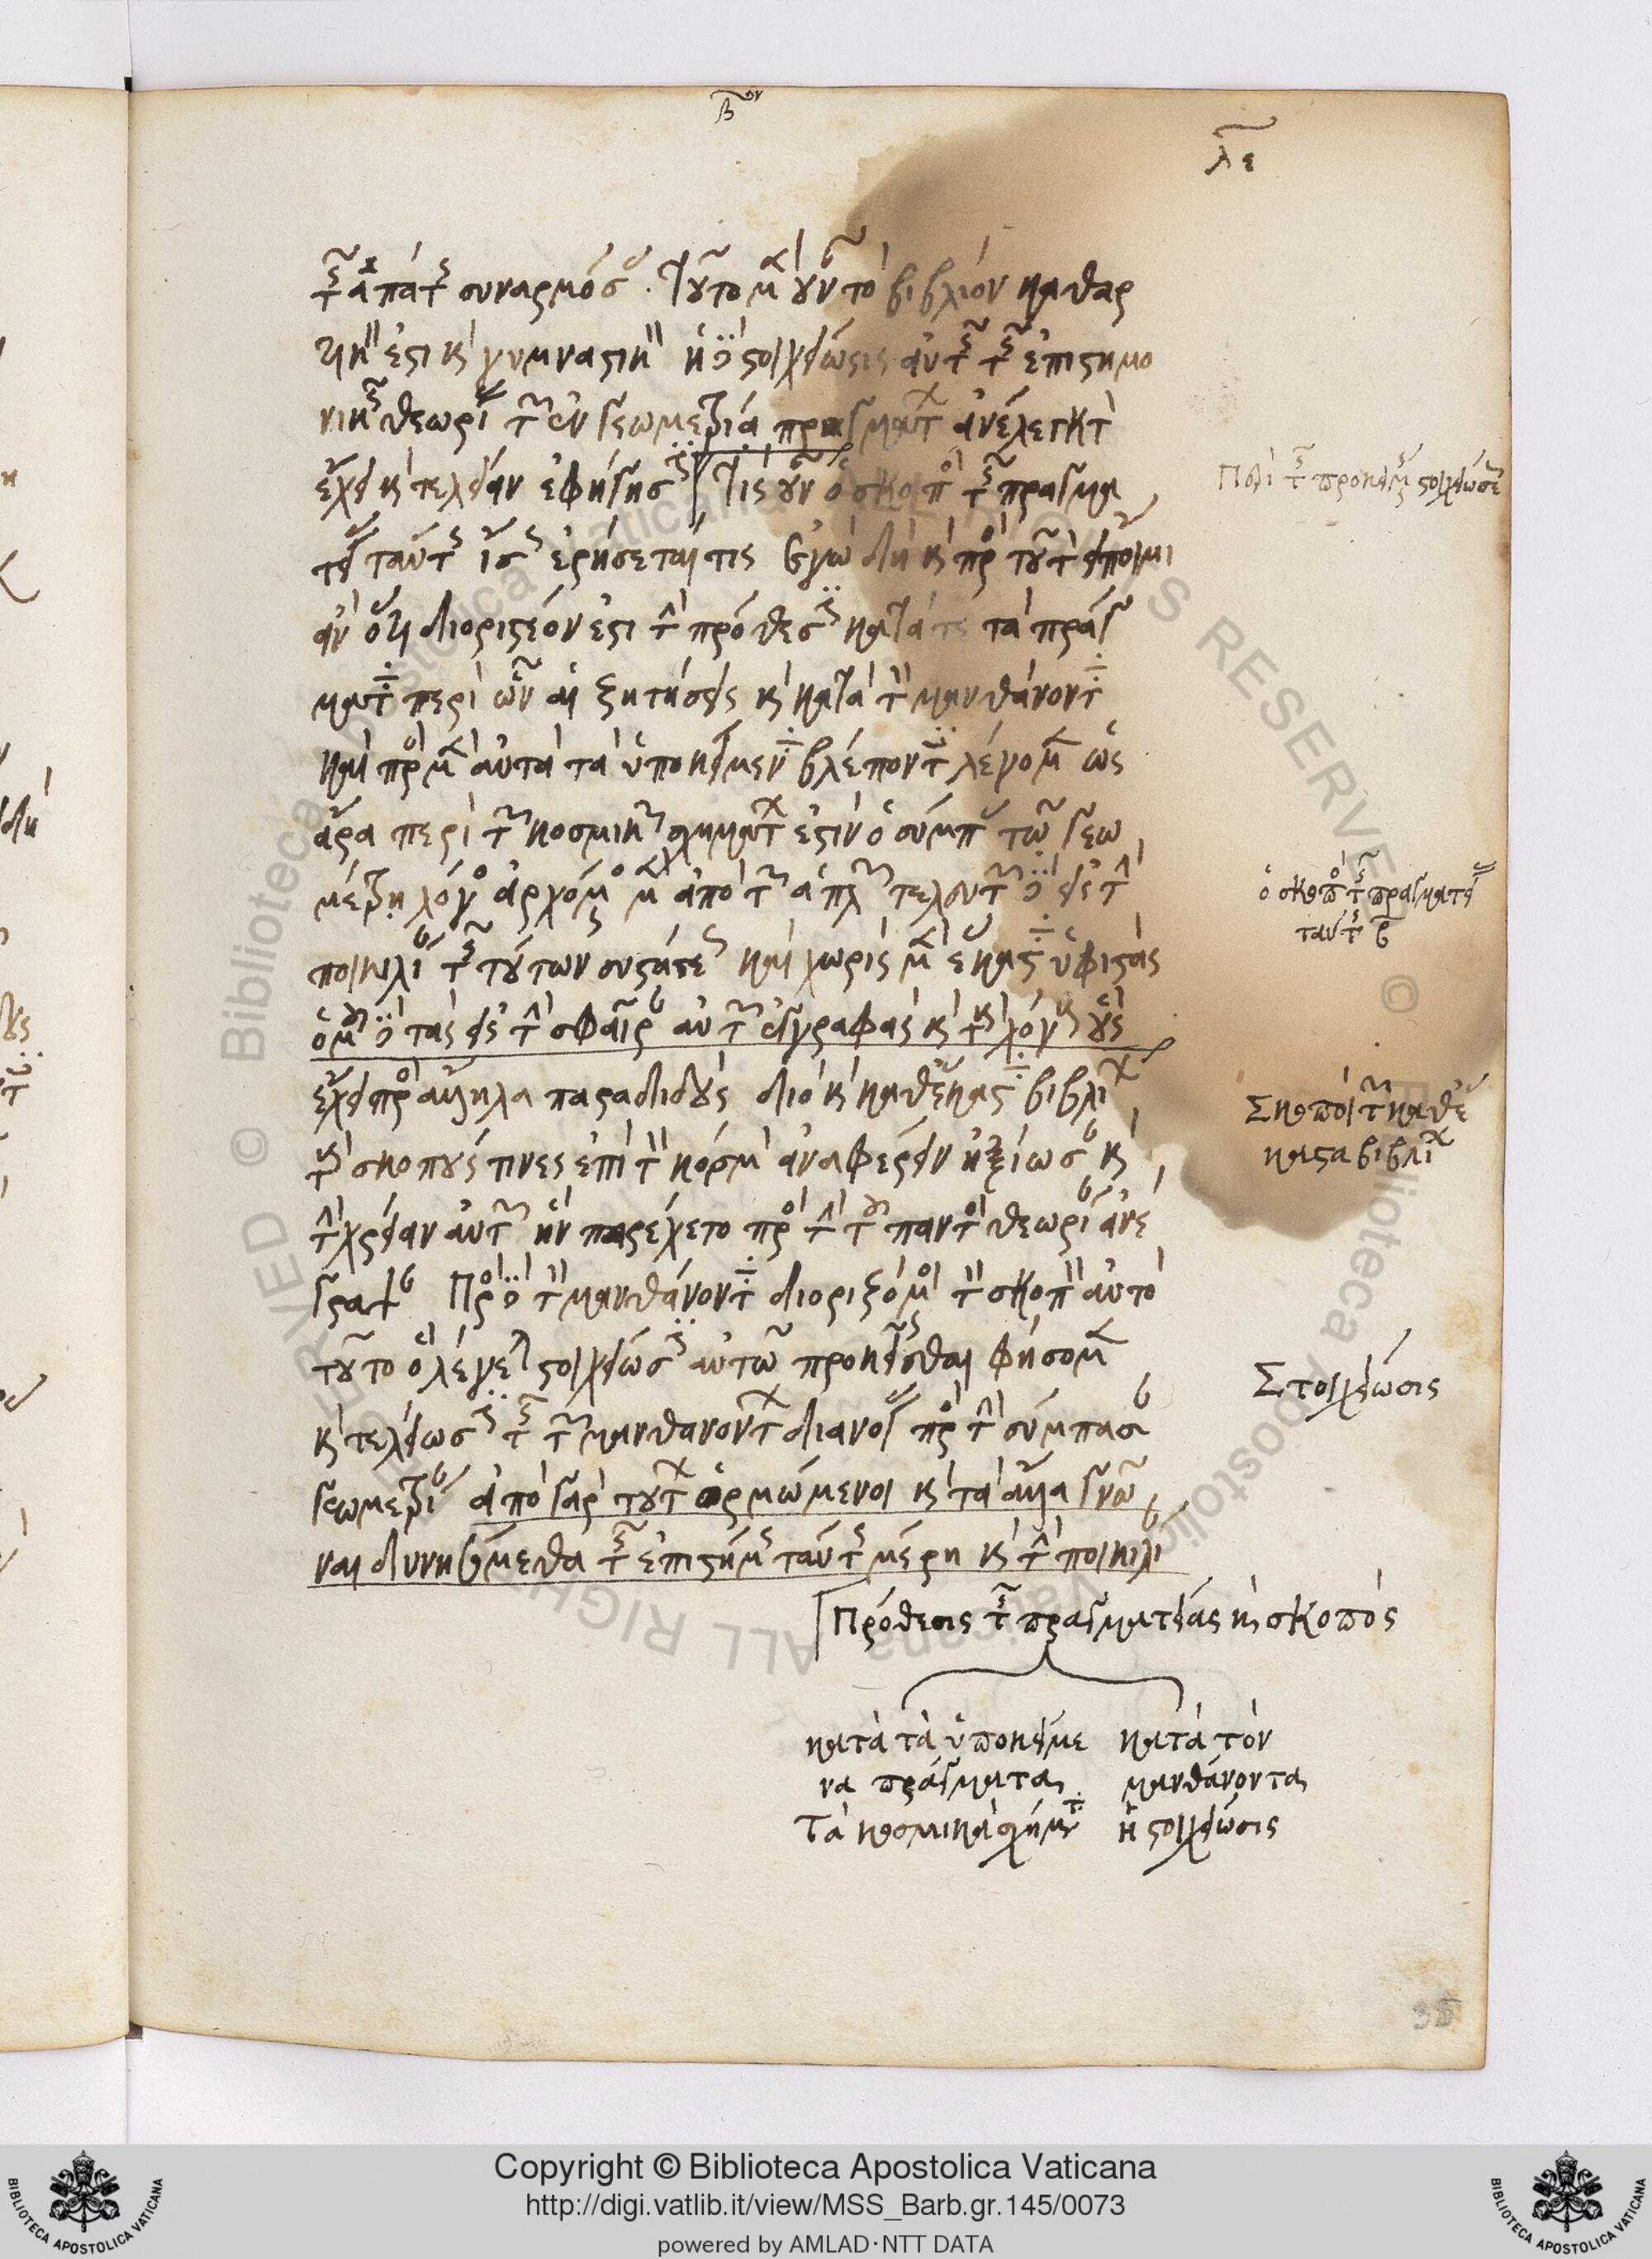 β̅ον
λε
τῆς ἀπάτης συναρμόσας. Τοῦτο μὲν οὖν τὸ βιβλίον καθαρ
τικὸν ἐστι καὶ γυμναστικὸν ἡ δὲ στοιχείωσις αὐτῆς τῆς ἐπιστημο
νικῆς θεωρίας τῶν ἐν γεωμετρία πραγμάτων ἀνέλεγκτον
ἔχει καὶ τελείαν ἐφήγησιν Τίς οὖν ὁ σκοπὸς τῆς πραγμα
τείας ταύτης ἴσως ἐρήσεται τις Ἐγὼ δὴ καὶ πρὸς τοῦτο εἴποιμι
ἂν ὅτι διοριστέον ἐστι τὴν πρόθεσιν κατά τε τὰ πράγ
ματα περὶ ὧν αἱ ζητήσεις καὶ κατὰ τὸν μανθάνοντα
καὶ πρὸς μὲν αὐτὰ τὰ ὑποκείμενα βλέποντες λέγομεν ὡς
ἄρα περὶ τῶν κοσμικῶν σχημάτων ἐστὶν ὁ σύμπας τῶ γεω
μέτρη λόγος ἀρχόμενος μὲν ἀπὸ τῶν ἁπλῶν τελευτῶν δὲ εἰς τὴν
ποικιλίαν τῆς τούτων συστάσεως καὶ χωρὶς μὲν ἕκαστα ὑφιστὰς
ὁμοῦ δὲ τὰς εἰς τὴν σφαῖραν αὐτῶν ἐγγραφὰς καὶ τοὺς λόγους οὓς
ἔχει πρὸς ἄλληλα παραδιδοὺς διὸ καὶ καθ' ἕκαστα βιβλίων
τοὺς σκοπούς τινες ἐπὶ τὸν κόσμον ἀναφέρειν ἠξίωσαν καὶ
τὴν χρείαν αὐτῶν ἣν παρέχετο πρὸς τὴν τοῦ παντὸς θεωρίαν ἀνέ
γραψαν Πρὸς δὲ τὸν μανθάνοντα διοριζόμενος τὸν σκοπὸν αὐτὸ
τοῦτο ὃ λέγεται στοιχείωσιν αὐτῶ προκεῖσθαι φήσομεν
καὶ τελείωσιν τῆς τῶν μανθανόντων διανοίας πρὸς τὴν σύμπασαν
γεωμετρίαν ἀπὸ γὰρ τούτων ὁρμώμενοι καὶ τὰ ἄλλα γνῶ
ναι δυνησόμεθα τῆς ἐπιστήμης ταύτης μέρη καὶ τὴν ποικιλίαν
Περὶ τῆς προκειμένης στοιχειώσεως
ὁ σκοπὸς τῆς πραγματείας
ταύτης β
Σκοποὶ τῶν καθέ
καστα βιβλίων
Στοιχείωσις
Πρόθεσις τῆς πραγματείας ἢ σκοπός
κατὰ τὰ ὑποκείμε
να πράγματα
Τὰ κοσμικὰ σχήματα
κατὰ τὸν
μανθάνοντα
ἡ στοιχείωσις
35
Copyright © Biblioteca Apostolica Vaticana
http://digi.vatlib.it/view/MSS_Barb.gr.145/0073
powered by AMLAD·NTT DATA